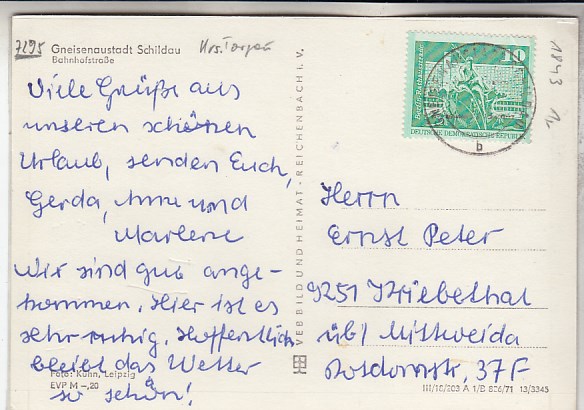 7295 Gneisenaustadt Schildau Krs. Torgau
Bahnhofstraße
Viele Grüße aus
unseren schönen
Urlaub, senden Euch,
Gerda, Anne und
Marlene
Wir sind gut ange-
kommen. Hier ist es
sehr ruhig. Hoffentlich
bleibt das Wetter
so schön!
Foto: Kuhn, Leipzig
EVP M –,20
VEB BILD UND HEIMAT · REICHENBACH i. V.
DEUTSCHE DEMOKRATISCHE REPUBLIK
b
1843
Herrn
Ernst Peter
9251 Kriebethal
übl Mittweida
37F
III/18/203 A 1/B 836/71 13/3345